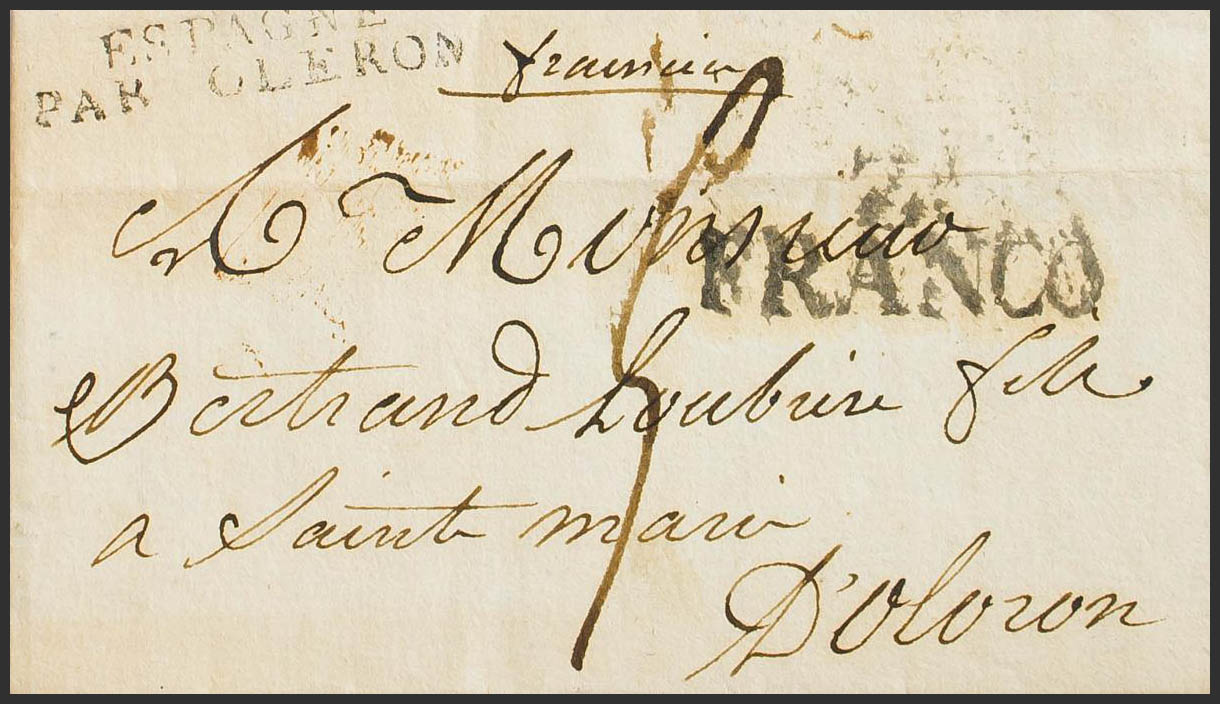 ESPAGNE
PAR OLERON
A Monsieur
FRANCO
Bertrand Loubiere fils
a Sainte marie
D'Oloron